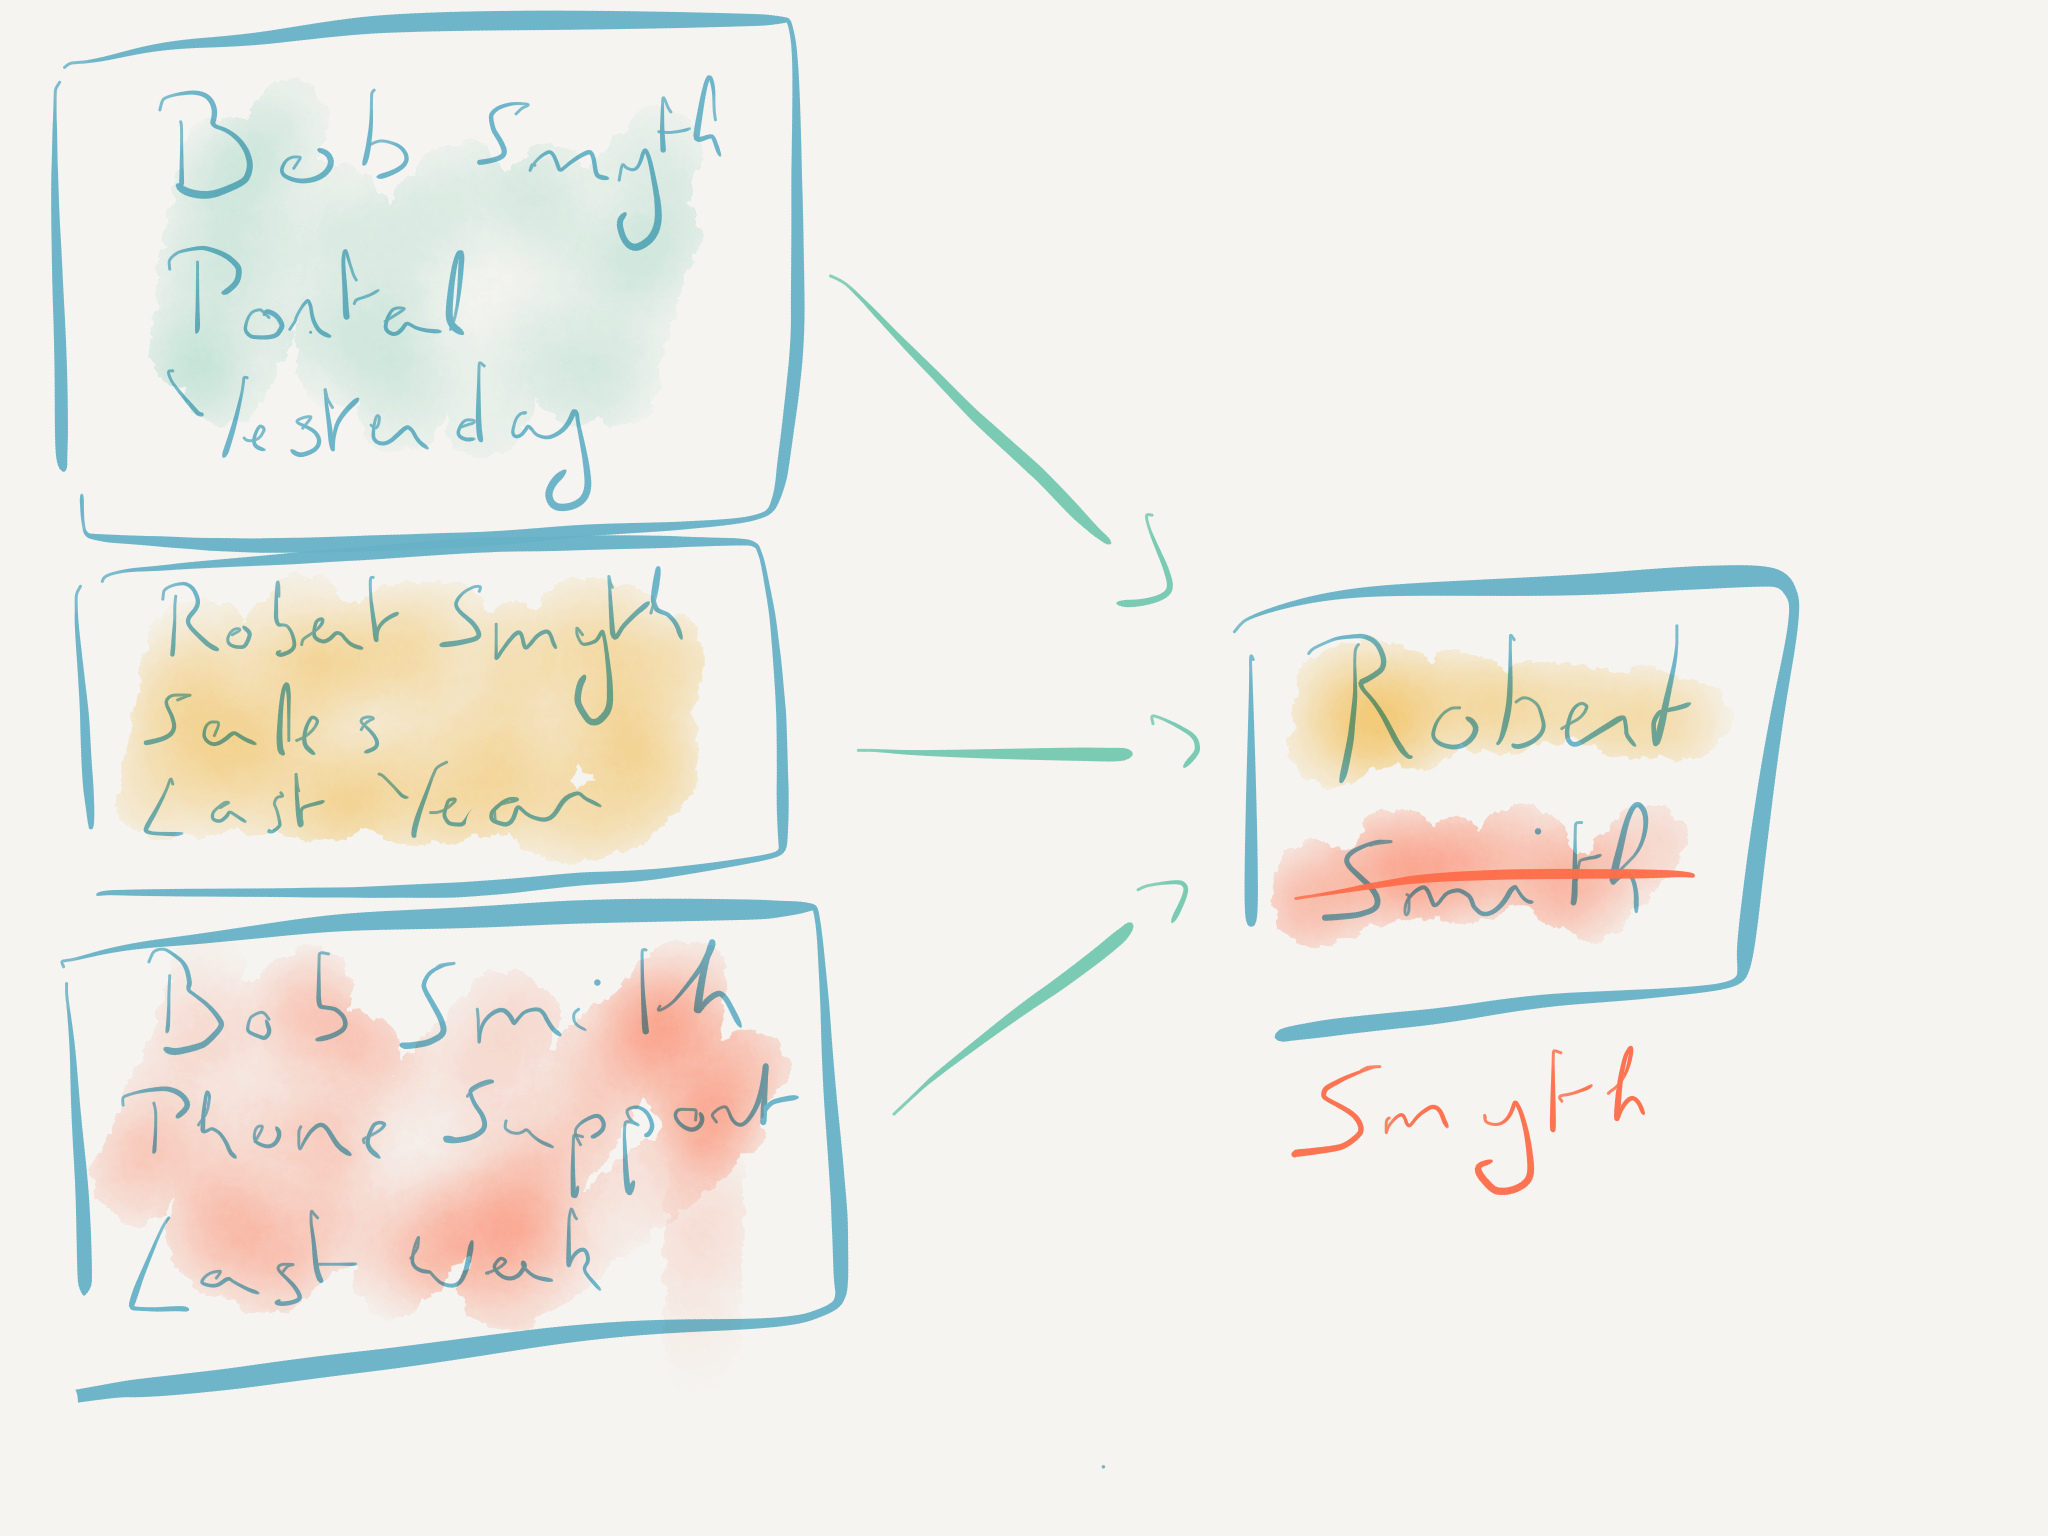 Bob Smyth
Portal
Yesterday
Robert Smyth
Sales
Last Year
Bob Smith
Phone Support
Last Week
Robert
Smith
Smyth